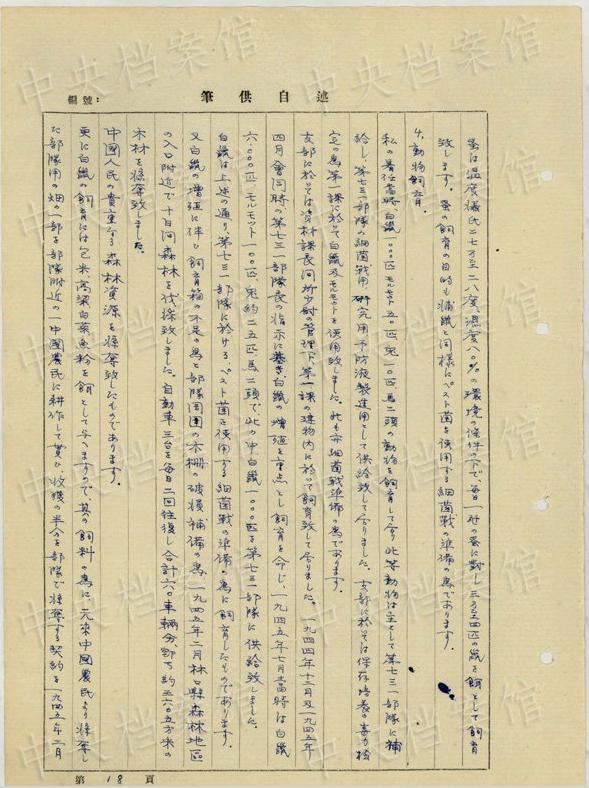 編號：
筆供自述
蚤は温度攝氏二七乃至二八度、濕度八〇%の環境の條件の下で、毎日一升の蚤に対し三乃至四匹の鼠を餌として飼育
致します。蚤の飼育の目的も捕鼠と同様にペスト菌を使用する細菌戰の準備の為であります。
4、動物飼育。
私の着任当時白鼠一〇〇〇匹モルモット五〇匹兎一〇匹馬二頭の動物を飼育して居り此等動物は主として第七三一部隊に補
給し、第七三一部隊の細菌戰用研究用予防液製造用として供給致して居りました。支部に於ては保存培養の毒力検
定の為第一課に於て白鼠及モルモットを使用致しました。此も亦細菌戰準備の為であります。
支部に於ては資材課長 少尉の管理下、第一課の建物内に於て飼育致して居りました。一九四四年十二月及一九四五年
四月會同時の第七三一部隊長の指示に基き、白鼠の増殖を重点とし飼育を命じ、一九四五年七月当時は白鼠
六、〇〇〇匹、モルモット一〇〇匹、兎約二五匹、馬二頭で、此の中白鼠一〇〇〇匹を第七三一部隊に供給致しました。
白鼠は上述の通り、第七三一部隊に於けるペスト菌を使用する細菌戰の準備の為に飼育したものであります。
又白鼠の増殖に伴ひ飼育箱の不足の為と部隊周囲の木柵の破損補備の為、一九四五年二月林口縣森林地區
の入口附近で十日间森林を伐採致しました。自動車三台を毎日二回往復し合計六〇車輛分、即ち約三六〇五方米の
木材を掠奪致しました。
中國人民の貴重なる森林資源を掠奪致したものであります。
更に白鼠の飼育には包米高粱白菜魚粉を餌として与へますので、其の飼料の為に、元来中國農民より掠奪し
た部隊用の畑の一部を部隊附近の一中國農民に耕作して貰ひ、收穫の半分を部隊で掠奪する契約を一九四五年二月
第 18 頁
中央档案馆